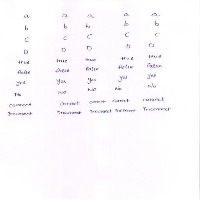 a a a a a
b b b b b
C C C C C
D D D D D
true true true true true
false false false false false
yes yes yes yes yes
No No No No No
correct correct correct correct correct
Incorrect Incorrect Incorrect Incorrect Incorrect